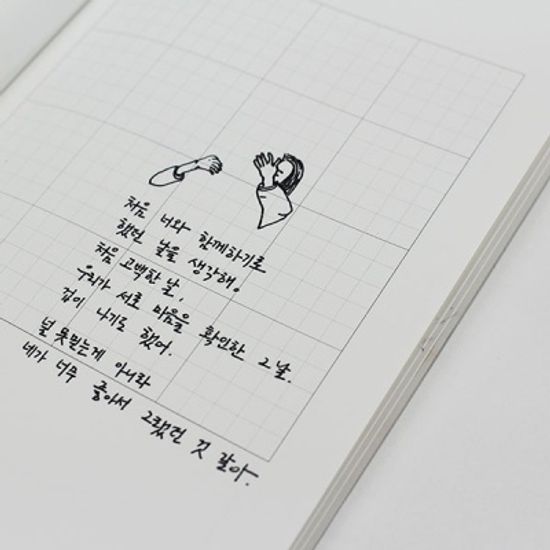 처음 너와 함께하기로
했던 날을 생각해.
처음 고백한 날,
우리가 서로 마음을 확인한 그날.
겁이 나기도 했어.
널 못믿는게 아니라
네가 너무 좋아서 그랬던 것 같아.